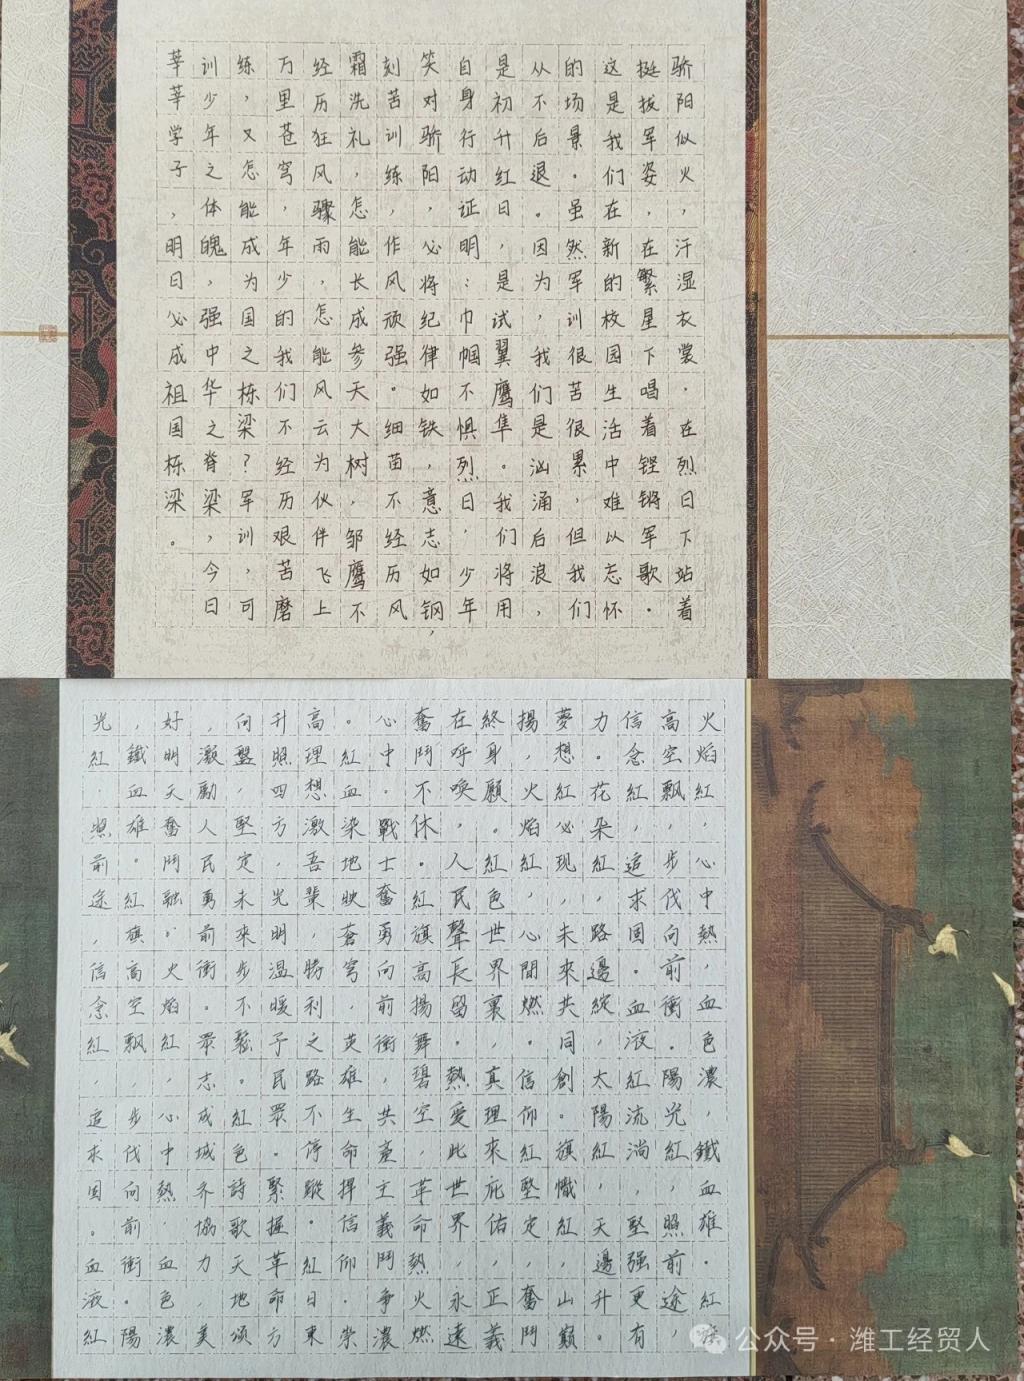 骄阳似火，汗湿衣裳．在烈日下站着
挺拔军姿，在繁星下唱着铿锵军歌．
这是我们在新的校园生活中难以忘怀
的场景．虽然军训很苦很累，但我们
从不后退。因为，我们是汹涌后浪，
是初升红日，是试翼鹰隼。我们将用
自身行动证明：巾帼不惧烈日，少年
笑对骄阳，必将纪律如铁，意志如钢，
刻苦训练，作风顽强。细苗不经历风
霜洗礼，怎能长成参天大树，邹鹰不
经历狂风骤雨，怎能风云为伙伴飞上
万里苍穹，年少的我们不经历艰苦磨
练，又怎能成为国之栋梁？军训，可
训少年之体魄，强中华之脊梁，今日
莘莘学子，明日必成祖国栋梁。
火焰紅，心中熱，血色濃，鐵血雄．紅旗
高空飄，步伐向前衝．陽光紅，照前途，
信念紅，追求国．血液紅流淌，堅强更有
力．花朵紅，路邊綻，太陽紅，天邊升。
夢想紅必现，未來共同創。旗幟紅，山巔
揚，火焰紅，心間燃。信仰紅堅定，奮鬥
終身願。紅色世界裏，真理來庇佑，正義
在呼喚，人民聲長留．熱愛此世界，永遠
奮鬥不休。紅旗高揚舞碧空，革命熱火燃
心中．戰士奮勇向前衝，共產主義鬥争濃
。紅血染地映蒼穹，英雄生命捍信仰．崇
高理想激吾輩，勝利之路不停蹤．紅日東
升照四方，光明温暖予民眾。緊握革命方
向盤，堅定未來步不鬆。紅色詩歌天地頌
，激勵人民勇前衝。眾志成城齐協力，美
好明天奮鬥融．火焰紅，心中熱，血色濃
，鐵血雄。紅旗高空飄，步伐向前衝。陽
光紅，照前途，信念紅，追求国。血液紅
公众号·潍工经贸人